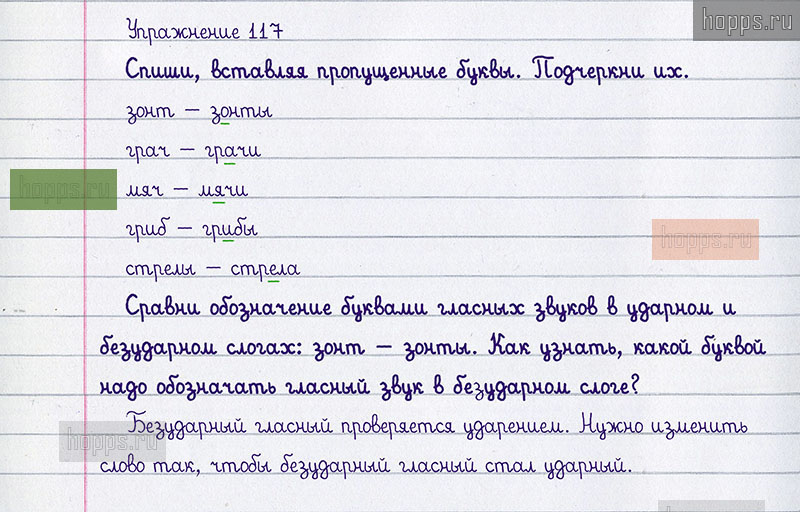 hopps.ru
Упражнение 117
Спиши, вставляя пропущенные буквы. Подчеркни их.
зонт – зонты
грач – грачи
hopps.ru
мяч – мячи
гриб – грибы
hopps.ru
стрелы – стрела
Сравни обозначение буквами гласных звуков в ударном и
безударном слогах: зонт – зонты. Как узнать, какой буквой
надо обозначать гласный звук в безударном слоге?
Безударный гласный проверяется ударением. Нужно изменить
hopps.ru
слово так, чтобы безударный гласный стал ударный.
hopps.ru